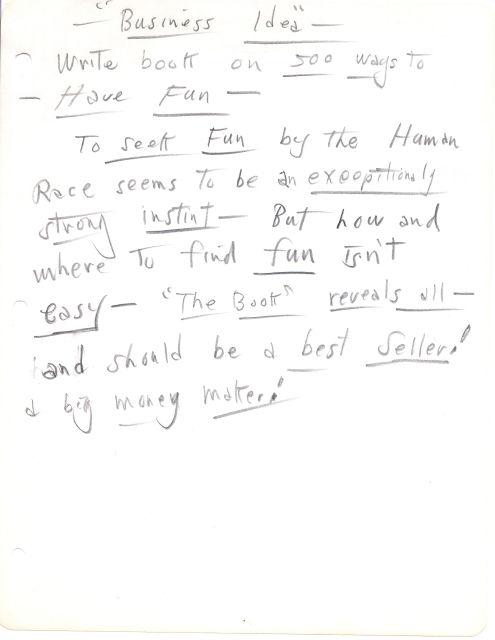 — "Business Idea" —
Write book on 500 ways to
— Have Fun —
To seek Fun by the Human
Race seems to be an exeoptionaly
strong instint — But how and
where To find fun isn't
easy — "The Book" reveals all —
and should be a best seller!
a big money maker!